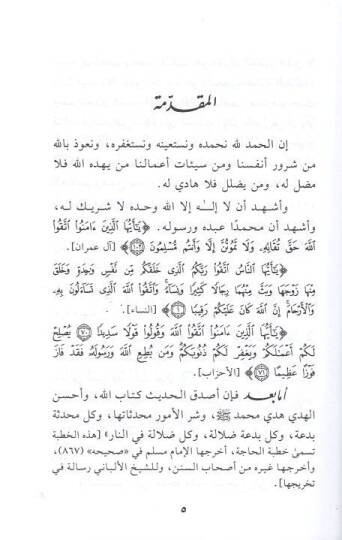 المقدّمة
إن الحمد لله نحمده ونستعينه ونستغفره، ونعوذ بالله
من شرور أنفسنا ومن سيئات أعمالنا من يهده الله فلا
مضل له، ومن يضلل فلا هادي له.
وأشهد أن لا إله إلا الله وحده لا شريك له،
وأشهد أن محمدًا عبده ورسوله. ﴿يَٰٓأَيُّهَا ٱلَّذِينَ ءَامَنُوا۟ ٱتَّقُوا۟
ٱللَّهَ حَقَّ تُقَاتِهِۦ وَلَا تَمُوتُنَّ إِلَّا وَأَنتُم مُّسْلِمُونَ ١٠٢﴾ [آل عمران].
﴿يَٰٓأَيُّهَا ٱلنَّاسُ ٱتَّقُوا۟ رَبَّكُمُ ٱلَّذِى خَلَقَكُم مِّن نَّفْسٍ وَٰحِدَةٍ وَخَلَقَ
مِنْهَا زَوْجَهَا وَبَثَّ مِنْهُمَا رِجَالًا كَثِيرًا وَنِسَآءً ۚ وَٱتَّقُوا۟ ٱللَّهَ ٱلَّذِى تَسَآءَلُونَ بِهِۦ
وَٱلْأَرْحَامَ ۚ إِنَّ ٱللَّهَ كَانَ عَلَيْكُمْ رَقِيبًا ١﴾ [النساء].
﴿يَٰٓأَيُّهَا ٱلَّذِينَ ءَامَنُوا۟ ٱتَّقُوا۟ ٱللَّهَ وَقُولُوا۟ قَوْلًا سَدِيدًا ٧٠ يُصْلِحْ
لَكُمْ أَعْمَٰلَكُمْ وَيَغْفِرْ لَكُمْ ذُنُوبَكُمْ ۗ وَمَن يُطِعِ ٱللَّهَ وَرَسُولَهُۥ فَقَدْ فَازَ
فَوْزًا عَظِيمًا ٧١﴾ [الأحزاب].
أما بعد فإن أصدق الحديث كتاب الله، وأحسن
الهدي هدي محمد ﷺ، وشر الأمور محدثاتها، وكل محدثة
بدعة، وكل بدعة ضلالة، وكل ضلالة في النار» [هذه الخطبة
تسمىٰ خطبة الحاجة، أخرجها الإمام مسلم في «صحيحه» (٨٦٧)،
وأخرجها غيره من أصحاب السنن، وللشيخ الألباني رسالة في
تخريجها].
٥